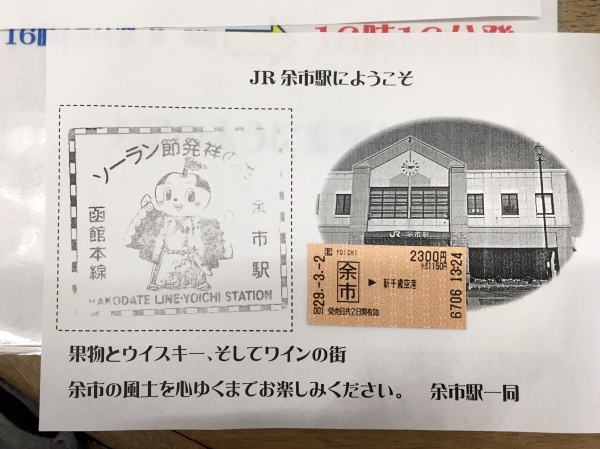 JR 余市駅にようこそ
ソーラン節発祥の
函館本線
余市駅
HAKODATE LINE・YOICHI STATION
JR 余市駅
YOICHI
2300円
余市
▶ 新千歳空港
小児1150円
29.-3.-2
001 発売日共2日間有効
6706 13:24
果物とウイスキー、そしてワインの街
余市の風土を心ゆくまでお楽しみください。 余市駅一同